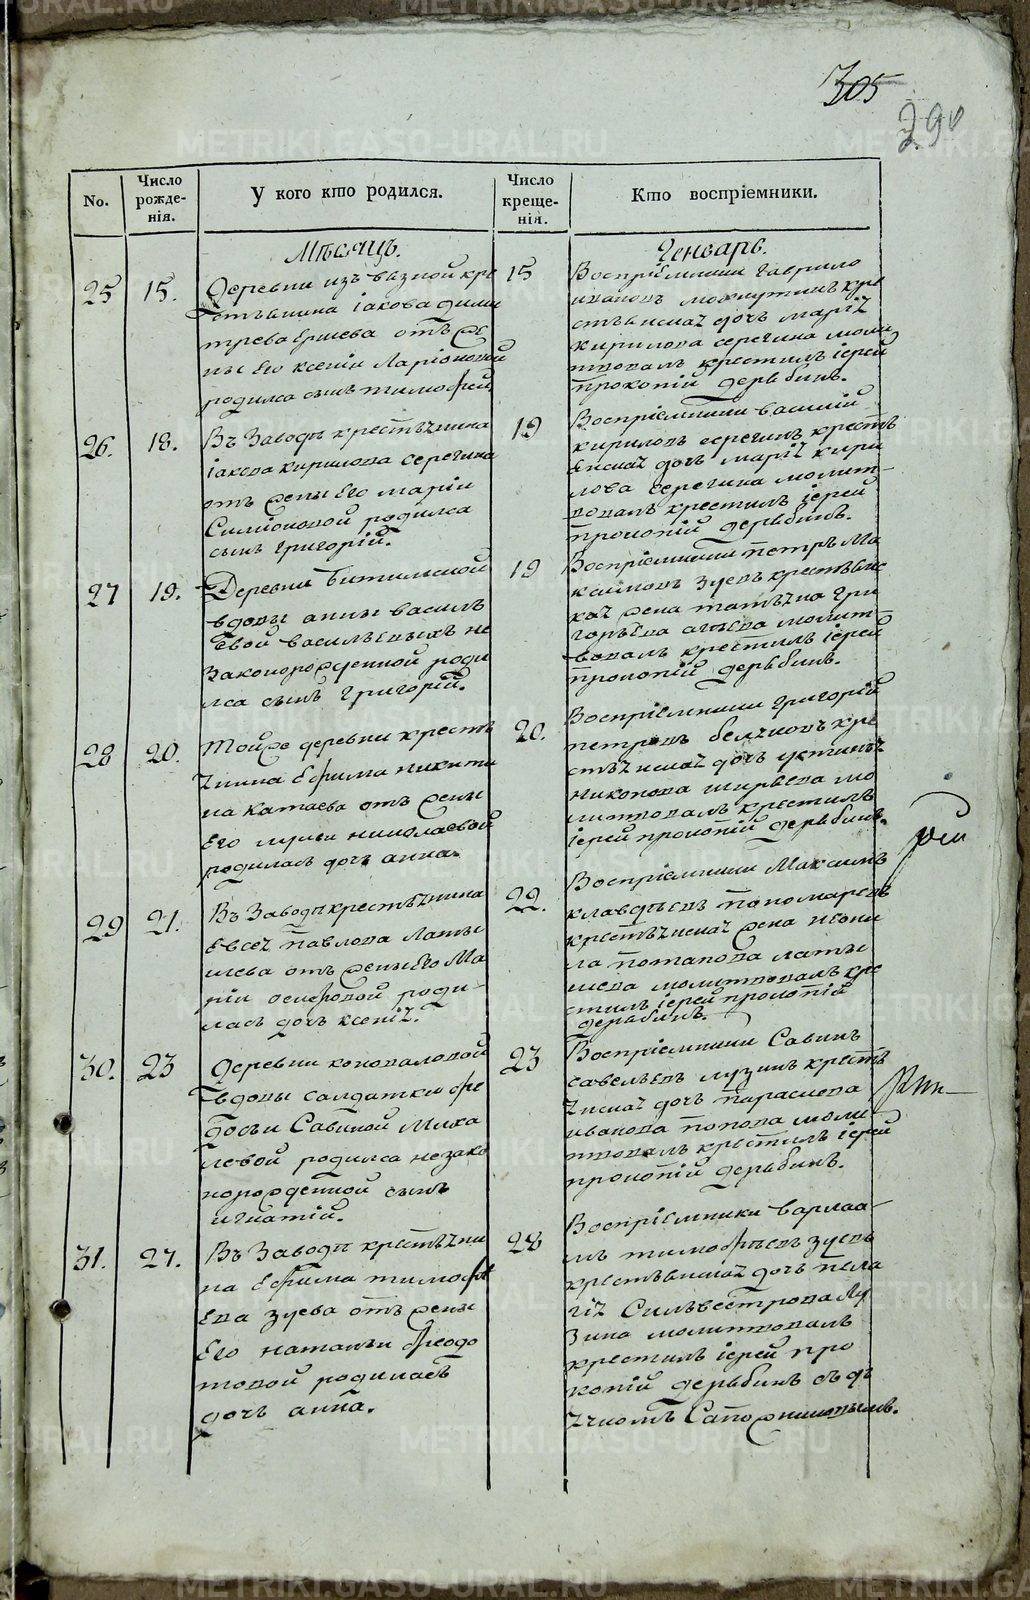 305
290
No.
Число рожденія.
У кого кто родился.
Число крещенія.
Кто воспріемники.
Мѣсяцъ.
Генварь.
25
15.
Деревни изъ вязной кре
стьянина іакова дими
трева ершева отъ же
ны его ксеніи Ларіоновой
родился сынъ тимофей.
15
Воспріемники гаврило
ивановъ кре
стьянская дочь марія
кирилова серегина моли
твовалъ крестилъ іерей
прокопій дерябинъ.
26.
18.
Въ Заводѣ крестьянина
іакова кирилова серегина
отъ жены его маріи
Симіоновой родился
сынъ григорій.
19
Воспріемники василій
кириловъ серегинъ кресть
янская дочь марія кири
лова серегина молит-
вовалъ крестилъ іерей
прокопій дерябинъ.
27
19.
Деревни битильской
вдовы анны василь
евой васильевыхъ не
законорожденной роди
лся сынъ григорій.
19
Воспріемники петръ Ма
ксимовъ зуевъ крестьянс
кая жена татьяна гри
горьева молит
вовалъ крестилъ іерей
прокопій дерябинъ.
28
20.
Тойже деревни кресть
янина ефима никити
на катаева отъ жены
его николаевой
родилась дочь анна.
20.
Воспріемники григорій
петровъ кре
стьянская дочь устинья
никонова ширяева мо
литвовалъ крестилъ
іерей прокопій дерябинъ.
29
21.
Въ Заводѣ крестьянина
евсея павлова Латы
шева отъ жены его Ма
ріи осиповой роди-
лась дочь ксенія.
22.
Воспріемники Максимъ
клавдѣевъ пономаревъ
крестьянская жена неони
ла потапова латы
шева молитвовалъ кре
стилъ іерей прокопій
дерябинъ.
30.
23
Деревни коноваловой
вдовы салдатки фе
досьи Савиной Миха
левой родился незако
норожденной сынъ
игнатій.
23
Воспріемники Савинъ
савельевъ лузинъ кресть
янская дочь параскева
иванова попова моли
твовалъ крестилъ іерей
прокопій дерябинъ.
31.
27.
Въ Заводѣ крестьяни
на ефима тимофе
ева зуева отъ жены
его натальи феодо
товой родилась
дочь анна.
28
Воспріемники варлаа-
мъ тимофѣевъ зуевъ
крестьянская дочь пела
гія Сильвестрова Лу
зина молитвовалъ
крестилъ іерей про
копій дерябинъ съ дь
ячкомъ Сапожниковымъ.
METRIKI.GASO-URAL.RU